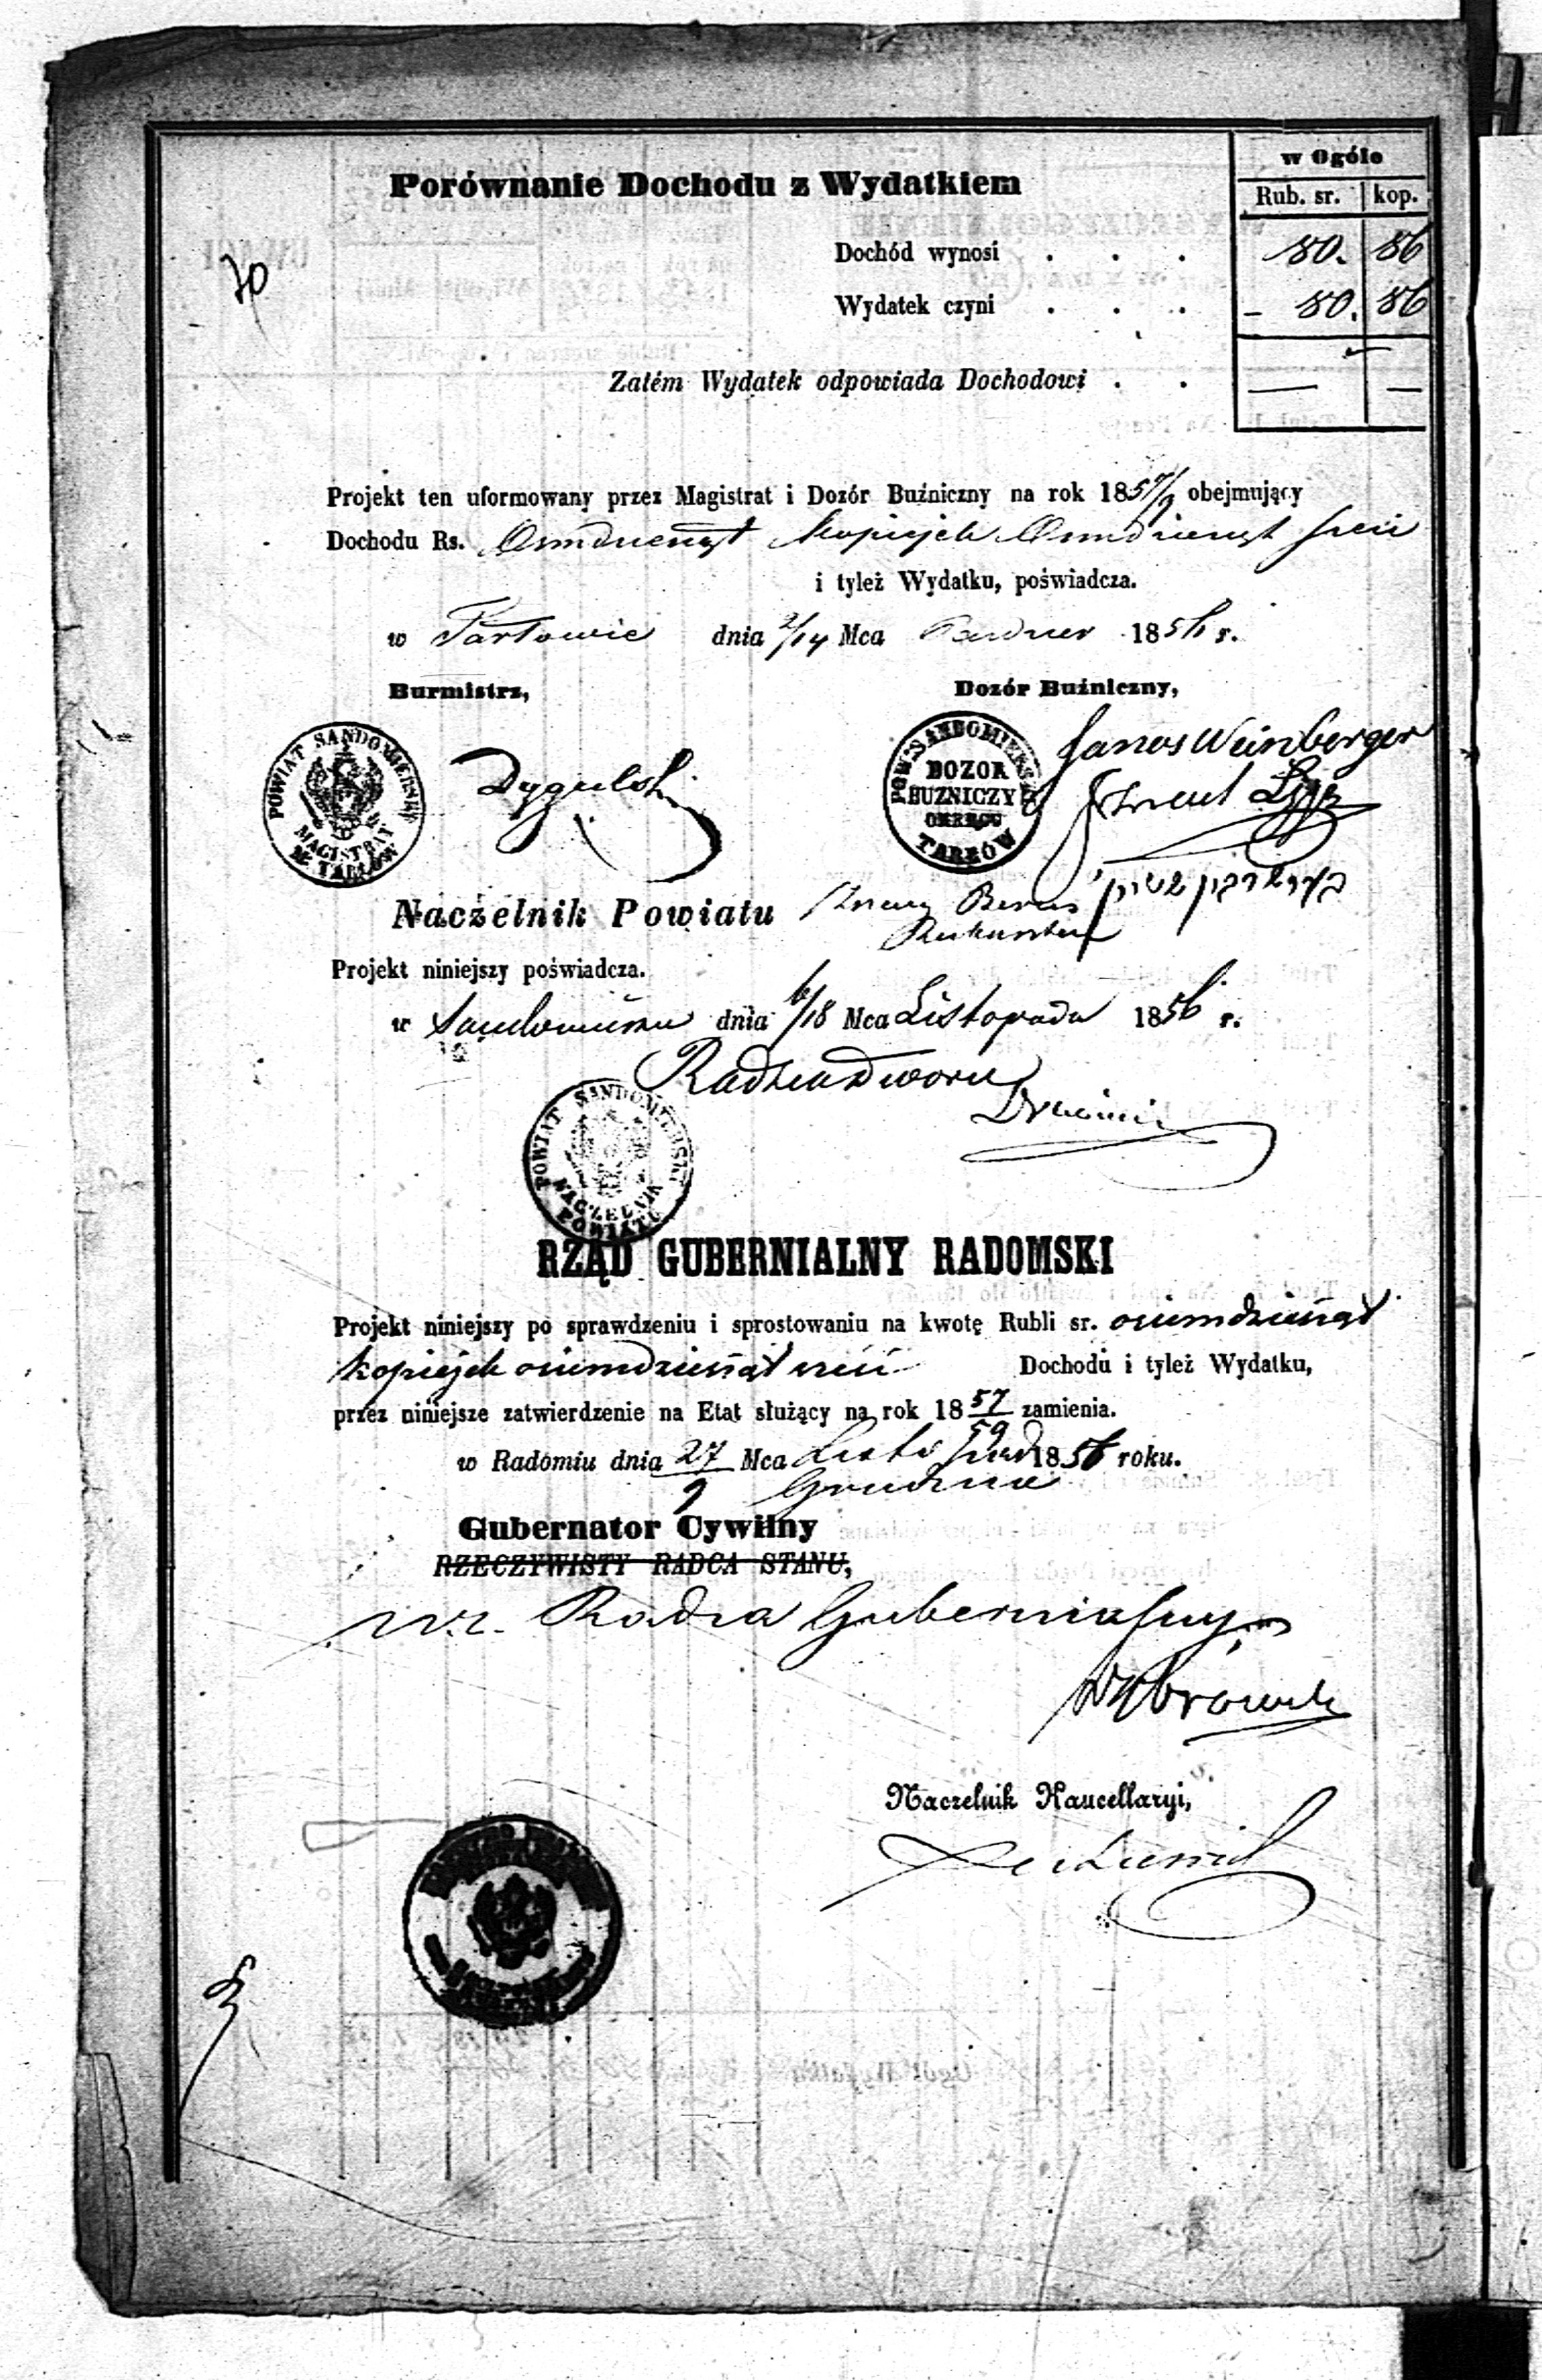 w Ogóle
Porównanie Dochodu z Wydatkiem
Rub. sr. kop.
Dochód wynosi . . . 80. 86
70
Wydatek czyni . . . – 80. 86
Zatém Wydatek odpowiada Dochodowi . . — —
Projekt ten uformowany przez Magistrat i Dozór Buźniczny na rok 1857/9 obejmujący
Dochodu Rs. Osmdziesiąt Kopiejek Osmdziesiąt sześć
i tyleż Wydatku, poświadcza.
w Tarłowie dnia 2/14 Mca 1856 r.
Burmistrz, Dozór Buźniczny,
POWIAT SANDOMIERSKI
MAGISTRAT
M. TARŁÓW
Dygulski
POW: SANDOMIERSKI
DOZOR
BUZNICZY
OKRĘGU
TARŁÓW
Janos Weinberger
Naczelnik Powiatu
Projekt niniejszy poświadcza.
w Sandomierzu dnia 6/18 Mca Listopada 1856 r.
Radzca Dworu
POWIAT SANDOMIERSKI
NACZELNIK
POWIATU
RZĄD GUBERNIALNY RADOMSKI
Projekt niniejszy po sprawdzeniu i sprostowaniu na kwotę Rubli sr. osiemdziesiąt
kopiejek osiemdziesiąt sześć Dochodu i tyleż Wydatku,
przez niniejsze zatwierdzenie na Etat służący na rok 1857/59 zamienia.
w Radomiu dnia 27/9 Mca Listopad 1856 roku.
Grudnia
Gubernator Cywilny
RZECZYWISTY RADCA STANU,
w.z. Radca Gubernialny
Naczelnik Kancellaryi,